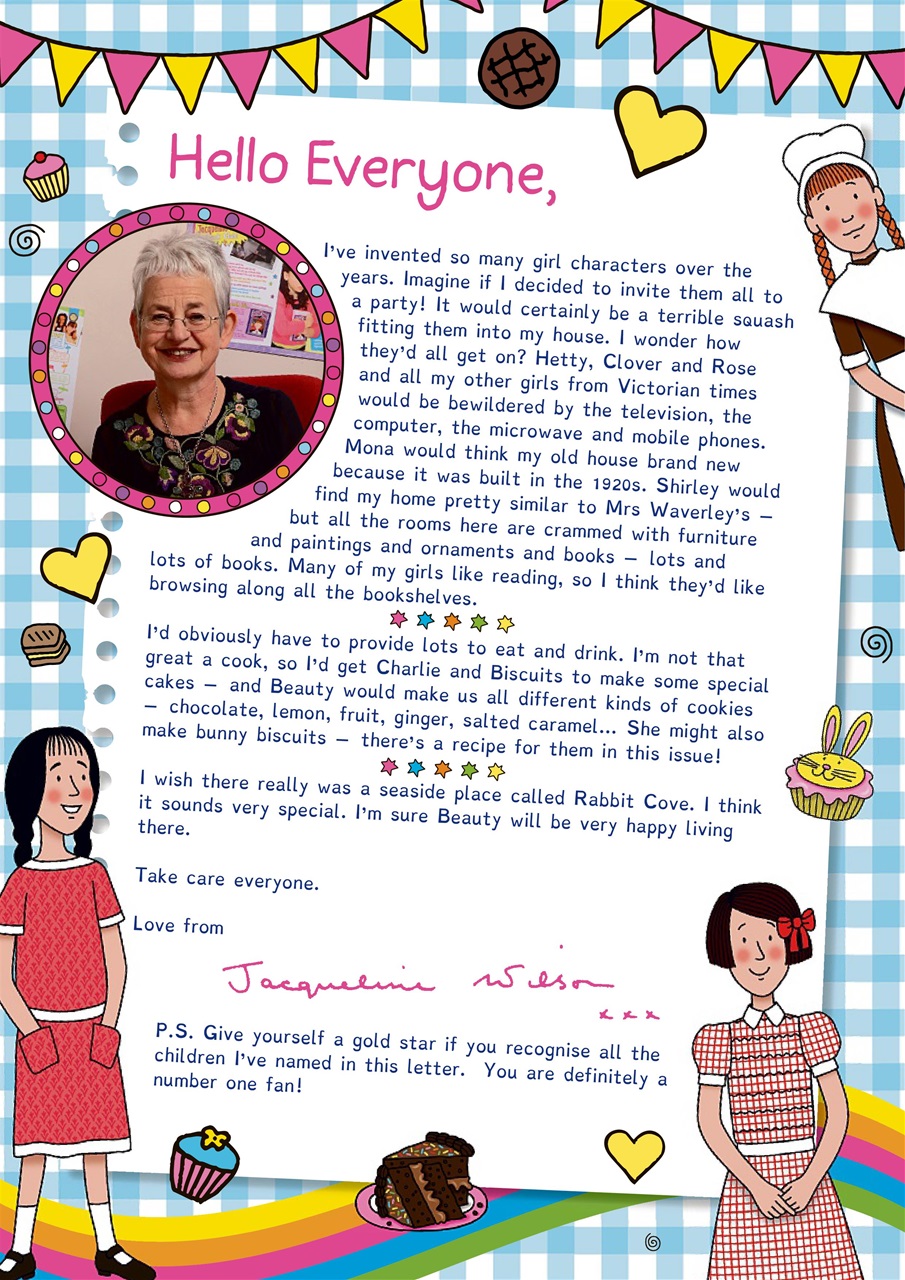 Hello Everyone,
I've invented so many girl characters over the
years. Imagine if I decided to invite them all to
a party! It would certainly be a terrible squash
fitting them into my house. I wonder how
they'd all get on? Hetty, Clover and Rose
and all my other girls from Victorian times
would be bewildered by the television, the
computer, the microwave and mobile phones.
Mona would think my old house brand new
because it was built in the 1920s. Shirley would
find my home pretty similar to Mrs Waverley's –
but all the rooms here are crammed with furniture
and paintings and ornaments and books – lots and
lots of books. Many of my girls like reading, so I think they'd like
browsing along all the bookshelves.
I'd obviously have to provide lots to eat and drink. I'm not that
great a cook, so I'd get Charlie and Biscuits to make some special
cakes – and Beauty would make us all different kinds of cookies
– chocolate, lemon, fruit, ginger, salted caramel... She might also
make bunny biscuits – there's a recipe for them in this issue!
I wish there really was a seaside place called Rabbit Cove. I think
it sounds very special. I'm sure Beauty will be very happy living
there.
Take care everyone.
Love from
Jacqueline Wilson
x x x
P.S. Give yourself a gold star if you recognise all the
children I've named in this letter. You are definitely a
number one fan!